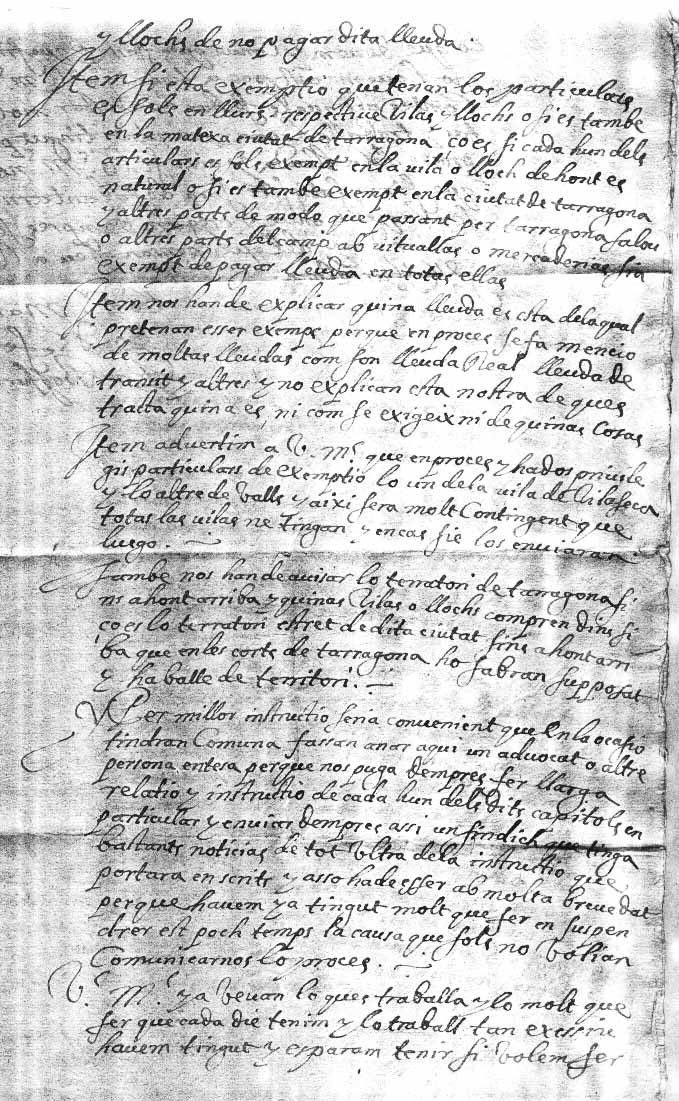 y llochs de no pagar dita lleuda.
Item si esta exemptio que tenan los particulars
es sols en llurs respective Vilas y llochs o si es tambe
en la matexa ciutat de tarragona ço es si cada hun dels
articulars es sols exempt en la vila o lloch de hont es
natural o si es tambe exempt en la ciutat de tarragona
y altres parts de modo que passant per tarragona salou
o altres parts del camp ab vituallas o mercaderias sia
exempt de pagar lleuda en totas ellas
Item nos han de explicar quina lleuda es esta dela qual
pretenan esser exemps perque en proces se fa mencio
de moltas lleudas com son lleuda Real lleuda de
transit y altres y no explican esta nostra de ques
tracta quina es, ni com se exigeix ni de quinas Cosas
Item advertim a V. Ms. que en proces y ha dos privile
gis particulars de exemptio lo un de la vila de Vilaseca
y lo altre de Valls y aixi sera molt Contingent que
totas las vilas ne tingan y en cas sie los enviaran
luego.
Tambe nos han de avisar lo terratori de tarragona fi
ns a hont arriba y quinas Vilas o llochs compren dins si
ço es lo terratori estret de dita ciutat fins a hont arri
ba que en les corts de tarragona ho sabran supposat
y ha balle de territori.
Per millor instructio seria convenient que en la ocasio
tindran Comuna fassan anar aqui un advocat o altre
persona entesa perque nos puga dempres fer llarga
relatio y instructio de cada hun dels dits capitols en
particular y enviar dempres assi un sindich que tinga
bastants noticias de tot Ultra de la instructio que
portara en scrits y asso ha de esser ab molta brevedat
perque havem ya tingut molt que fer en suspen
drer est poch temps la causa que sols no Volian
Comunicarnos lo proces.
Vs. Ms. ya Veuan lo ques traballa y lo molt que
fer que cada die tenim y lo traball tan excessiu
havem tingut y esparam tenir si Volem fer